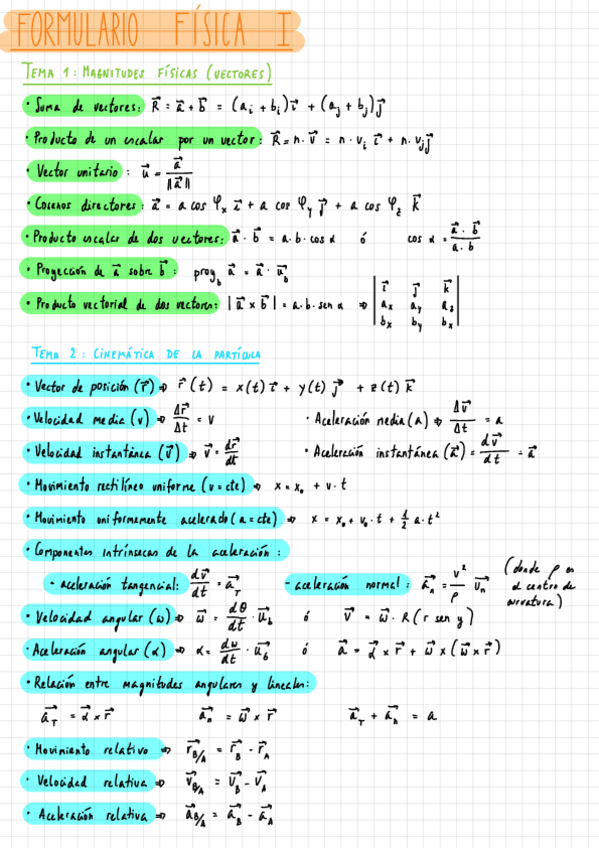 FORMULARIO FÍSICA I
TEMA 1: MAGNITUDES FÍSICAS (VECTORES)
· Suma de vectores: R⃗ = a⃗ + b⃗ = (a_i + b_i) i⃗ + (a_j + b_j) j⃗
· Producto de un escalar por un vector: R⃗ = n · v⃗ = n · v_i i⃗ + n · v_j j⃗
· Vector unitario: u⃗ = a⃗ / ||a⃗||
· Cosenos directores: a⃗ = a cos φ_x i⃗ + a cos φ_y j⃗ + a cos φ_z k⃗
· Producto escalar de dos vectores: a⃗ · b⃗ = a · b · cos α ó cos α = a⃗ · b⃗ / a · b
· Proyección de a⃗ sobre b⃗: proy_b a⃗ = a⃗ · u⃗_b
· Producto vectorial de dos vectores: |a⃗ x b⃗| = a · b · sen α ⇒ | i⃗ j⃗ k⃗ |
| a_x a_y a_z |
| b_x b_y b_x |
TEMA 2: CINEMÁTICA DE LA PARTÍCULA
· Vector de posición (r⃗) ⇒ r⃗(t) = x(t) i⃗ + y(t) j⃗ + z(t) k⃗
· Velocidad media (v) ⇒ Δr⃗ / Δt = v · Aceleración media (a) ⇒ Δv⃗ / Δt = a
· Velocidad instantánea (v⃗) ⇒ v⃗ = dr⃗ / dt · Aceleración instantánea (a⃗) = dv⃗ / dt = a⃗
· Movimiento rectilíneo uniforme (v = cte) ⇒ x = x₀ + v · t
· Movimiento uniformemente acelerado (a = cte) ⇒ x = x₀ + v₀ · t + 1/2 a · t²
· Componentes intrínsecas de la aceleración:
- aceleración tangencial: dv⃗ / dt = a⃗_T - aceleración normal: a⃗_n = v² / ρ u⃗_n (donde ρ es el centro de curvatura)
· Velocidad angular (ω) ⇒ ω⃗ = dθ / dt · u⃗_b ó v⃗ = ω⃗ · R (r sen y)
· Aceleración angular (α) ⇒ α = dω / dt · u⃗_b ó a⃗ = α⃗ x r⃗ + ω⃗ x (ω⃗ x r⃗)
· Relación entre magnitudes angulares y lineales:
a⃗_T = α⃗ x r⃗ a⃗_n = ω⃗ x r⃗ a⃗_T + a⃗_n = a
· Movimiento relativo ⇒ r⃗_B/A = r⃗_B - r⃗_A
· Velocidad relativa ⇒ v⃗_B/A = v⃗_B - v⃗_A
· Aceleración relativa ⇒ a⃗_B/A = a⃗_B - a⃗_A